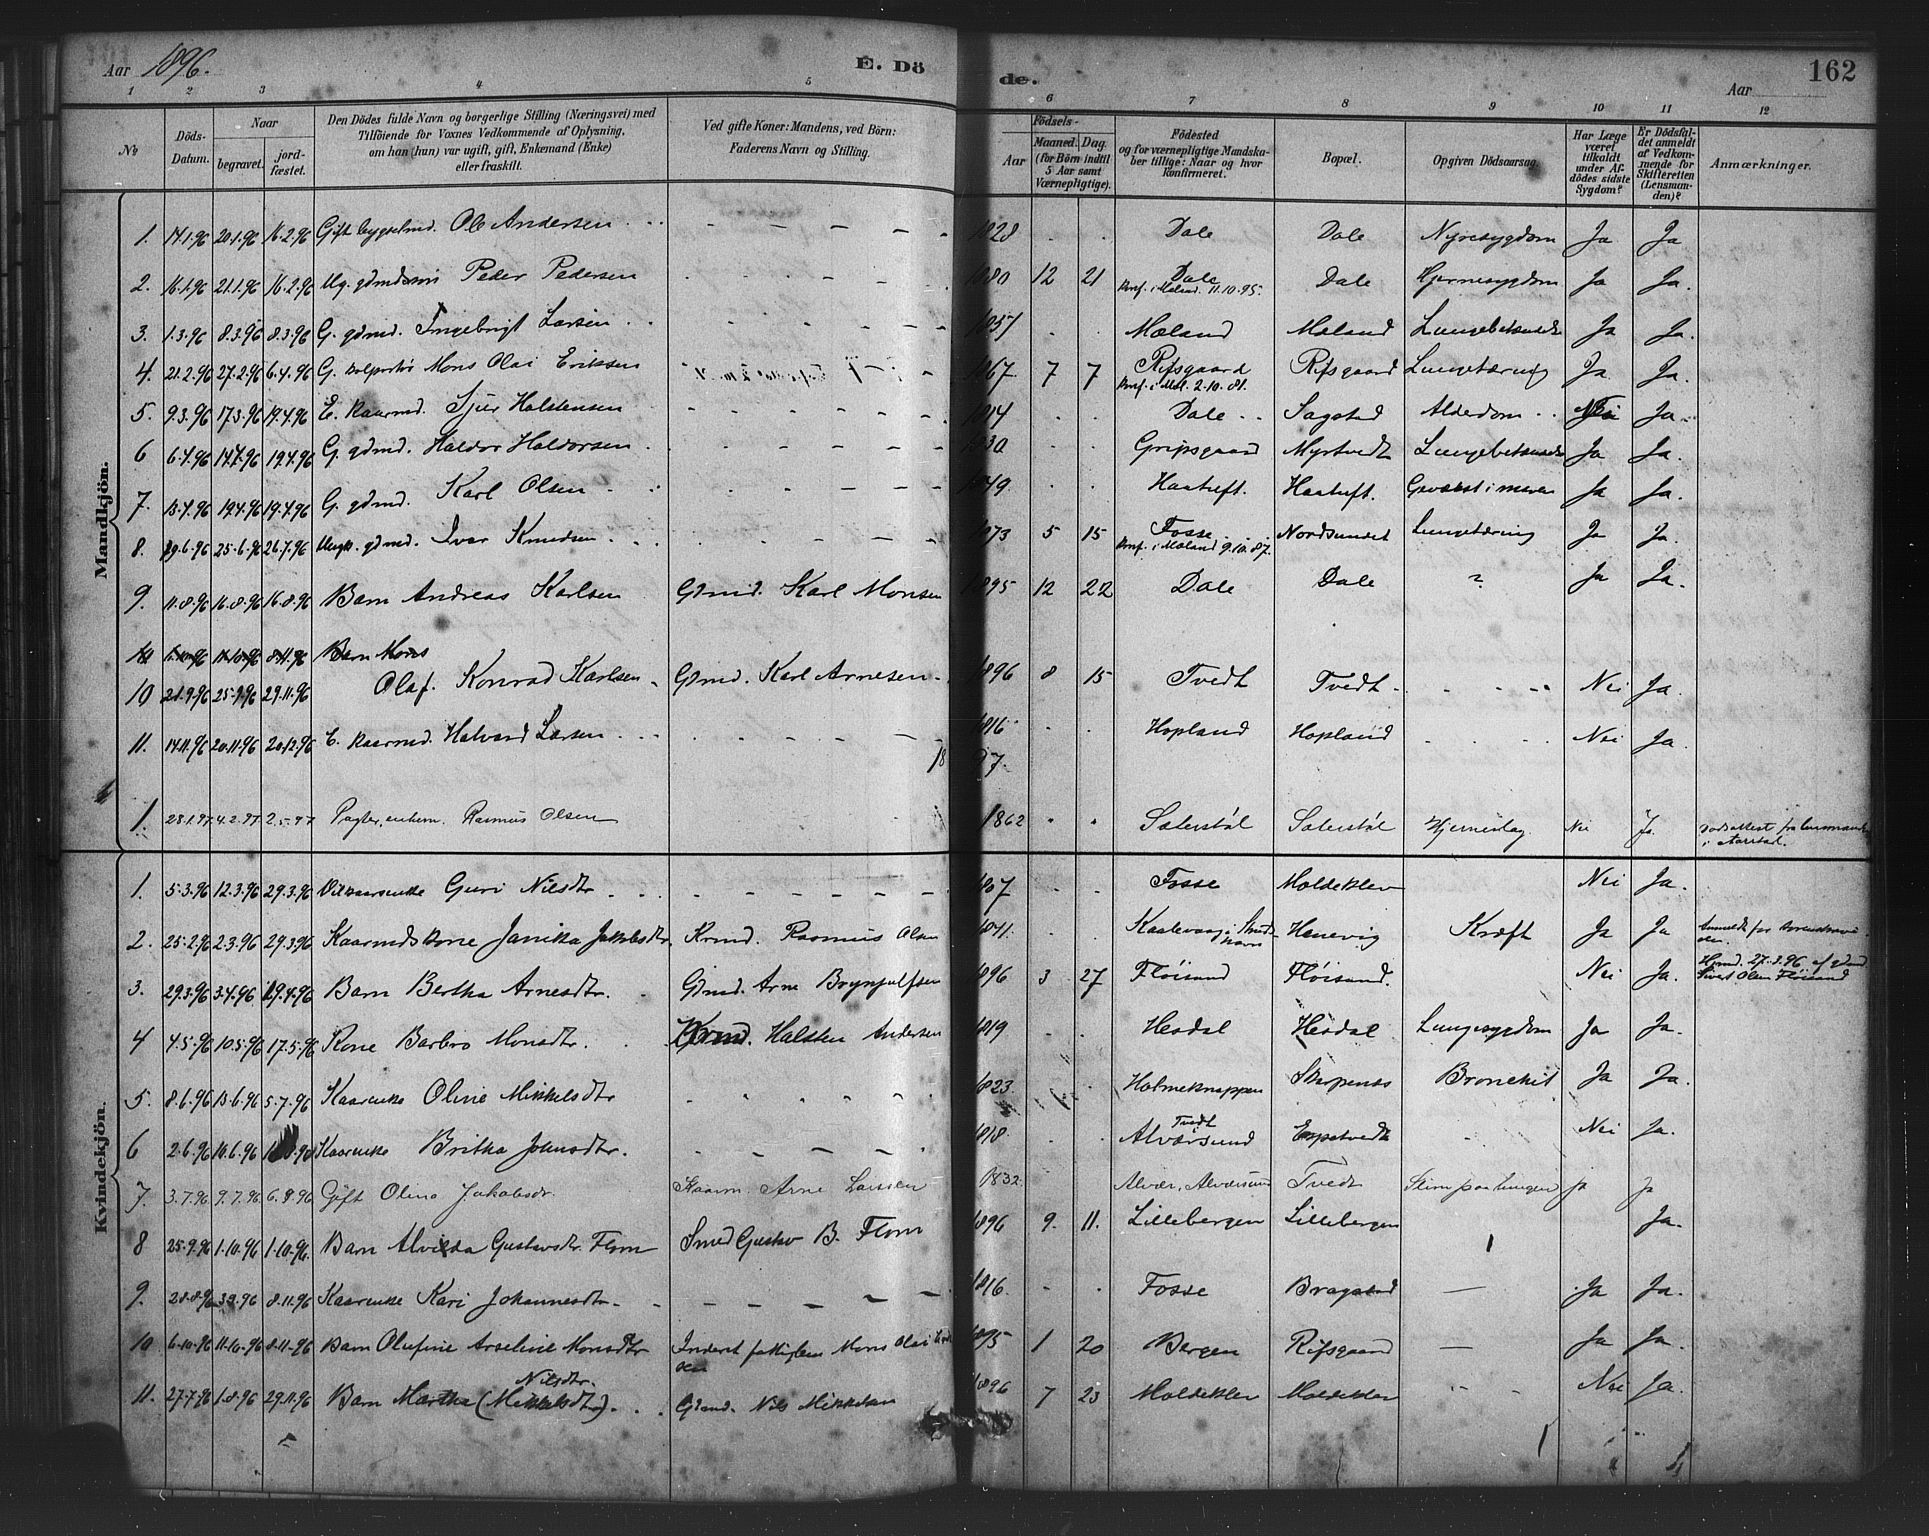 Aar 1896.
E. Dö
de.
Aar
162
1 2 3 4 5 6 7 8 9 10 11 12
No
Döds-Datum.
Naar
begravet.
jord-fæstet.
Den Dödes fulde Navn og borgerlige Stilling (Næringsvei) med
Tilföiende for Voxnes Vedkommende af Oplysning,
om han (hun) var ugift, gift, Enkemand (Enke)
eller fraskilt.
Ved gifte Koner: Mandens, ved Börn:
Faderens Navn og Stilling.
Födsels-
Aar
Maaned. Dag.
(for Börn indtil
5 Aar samt
Værnepligtige).
Födested
og for værnepligtige Mandska-
ber tillige: Naar og hvor
konfirmeret.
Bopæl.
Opgiven Dödsaarsag.
Har Læge
været
tilkaldt
under Af-
dödes sidste
Sygdom?
Er Dödsfal-
det anmeldt
af Vedkom-
mende for
Skifteretten
(Lensman-
den)?
Anmærkninger.
Mandkjön.
1. 14.1.96 20.1.96 16.2.96 Gift bygselmd. Ole Andersen 1828 Dale Dale Nyresygdom Ja Ja
2. 16.1.96 21.1.96 16.2.96 Ug. gdmdssøn Peder Pedersen 1880 12 21 Dale Dale Hjernesygdom Ja Ja.
Konf. i Mæland. 11.10.95.
3. 1.3.96 8.3.96 8.3.96 G. gdmd. Ingebrigt Larsen 1857 Mæland Mæland Lungebetændelse Ja Ja.
4. 21.2.96 27.2.96 6.4.96 G. kolportør Mons Olai Eriksen 1867 7 7 Rifsgaard Rifsgaard Lungetæring Ja Ja.
Konf. i Mæl. 2.10.81.
5. 9.3.96 17.3.96 19.4.96 E. kaarmd. Sjur Halstensen 1814 Dale Sagstad Alderdom Nei Ja
6 6.4.96 14.4.96 19.4.96 G. gdmd. Haldor Haldorsen 1830 Gripsgaard Myrtvedt Lungebetændelse Ja Ja.
7. 13.4.96 19.4.96 19.4.96 G. gdmd. Karl Olsen 1849. Haatuft. Haatuft. Ja Ja.
8. 19.6.96 25.6.96 26.7.96 Ungk. gdmd. Ivar Knudsen 1873 5 15 Fosse Nordsundet Lungetæring Ja Ja.
Konf. i Mæland 9.10.87.
9. 11.8.96 16.8.96 16.8.96 Barn Andreas Karlsen Gdmd. Karl Monsen 1895 12 22 Dale Dale ? Ja Ja.
11.10.96 8.11.96 Barn Mons
10 21.9.96 25.9.96 29.11.96 Olaf. Konrad Karlsen Gdmd. Karl Arnesen 1896 8 15 Tvedt Tvedt Nei Ja.
11. 14.11.96 20.11.96 20.12.96 E. kaarmd. Halvard Larsen 1816 Hopland Hopland Nei Ja.
1897.
1. 28.1.97 4.2.97 2.5.97 Pagter, enkem. Rasmus Olsen 1862 Sæterstøl Sæterstøl Hjerneslag Nei Ja Dødsattest fra lensmanden
Kvindekjön.
1. 5.3.96 12.3.96 29.3.96 Vilkaarsenke Guri Nilsdtr 1807 Fosse Moldeklev Nei Ja.
2. 25.2.96 2.3.96 29.3.96 Kaarmdskone Janika Jakobsdtr. Krmd. Rasmus Olsen 1841. Henevig Kræft Ja Ja
3. 29.3.96 3.4.96 19.4.96 Barn Bertha Arnesdtr. Gdmd. Arne Brynjulfsen 1896 3 27 Fløisand Fløisand. Nei Ja. Hjmd. 27.3.96 af gdmd Sivert Olsen Fløisand
4 4.5.96 10.5.96 17.5.96 Kone Barbro Monsdtr. Krmd. Halsten Andersen 1819 Hesdal Hesdal Lungesygdom Ja Ja.
5. 8.6.96 13.6.96 5.7.96 Kaarenke Oline Mikkelsdtr 1823 Holmeknappen Skarpenes Bronchit Ja Ja.
6 2.6.96 10.6.96 Kaarenke Britha Johnsdtr. 1818. Tvedt Alværsund Espetvedt Nei Ja.
7. 3.7.96 9.7.96 6.8.96 Gift Olina Jakobsdr. Kaarm. Arne Larsen 1832. Alvær, Alværsund Tvedt Slim paa Lungen Ja Ja
8 25.9.96 1.10.96 1.10.96. Barn Alvilda Gustavsdtr. Flom Smed Gustav B. Flom 1896 9. 11. Lillebergen Lillebergen Ja.
9. 28.8.96 3.9.96 8.11.96 Kaarenke Kari Johannesdtr. 1816. Fosse Bragstad — Ja Ja.
10 6.10.96 11.10.96 8.11.96 Barn Olufine Arseline Monsdtr 1895 1 20 Bergen Rifsgaard — Ja Ja.
11. 27.7.96 1.8.96 29.11.96 Barn Martha (Mikkelsdtr). Nilsdtr. Gdmd. Nils Mikkelsen 1896 7 23 Moldeklev Moldeklev Nei Ja.